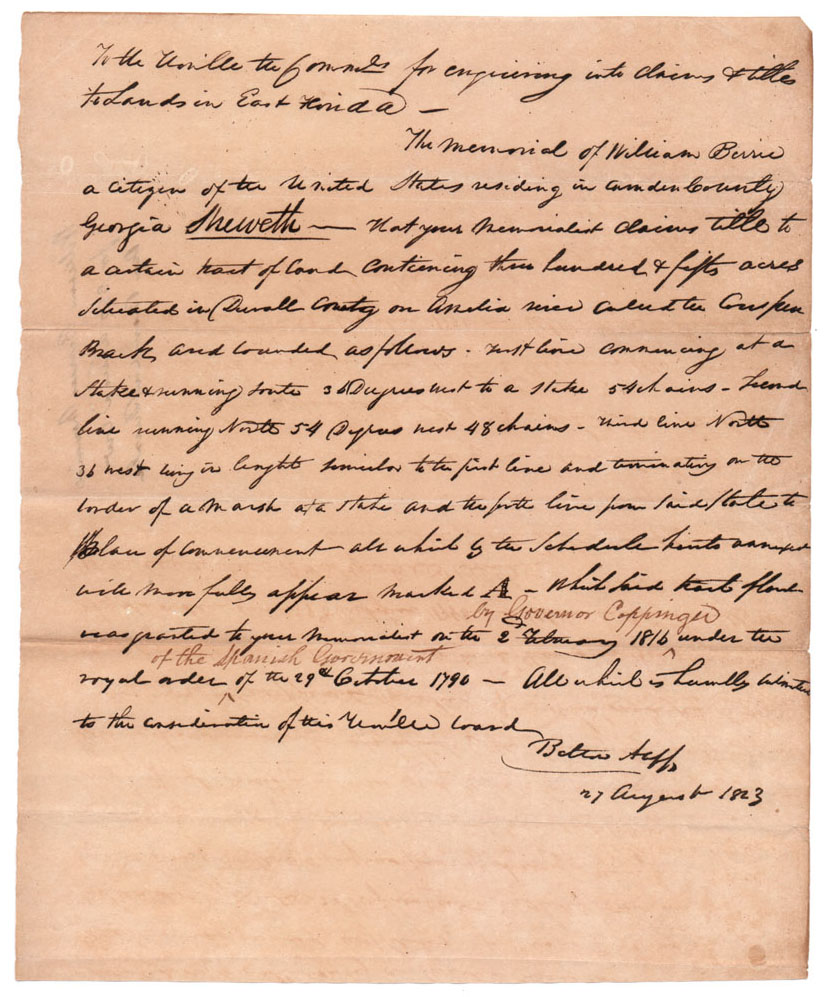 To the Honble the Commrs for enquiring into claims & titles
to Lands in East Florida —
The Memorial of William Berrie
a citizen of the United States residing in Camden County
Georgia Sheweth — that your Memorialist claims title to
a certain tract of land containing three hundred & fifty acres
situated in Duvall County on Amelia river called the
and bounded as follows. first line commencing at a
stake & running South 36 Degrees west to a stake 54 chains - Second
line running North 54 Degrees west 48 chains - third line North
36 west being in length similar to the first line and terminating on the
border of a Marsh at a stake and the forth line from said stake to
place of commencement all which by the Schedule hereto annexed
will more fully appear marked A - Which said tract of land
by Governor Coppinger
was granted to your Memorialist on the 2 February 1816 under the
of the Spanish Government
royal order of the 29th October 1790 — All which is humbly submitted
to the consideration of this Honble board
27 August 1823